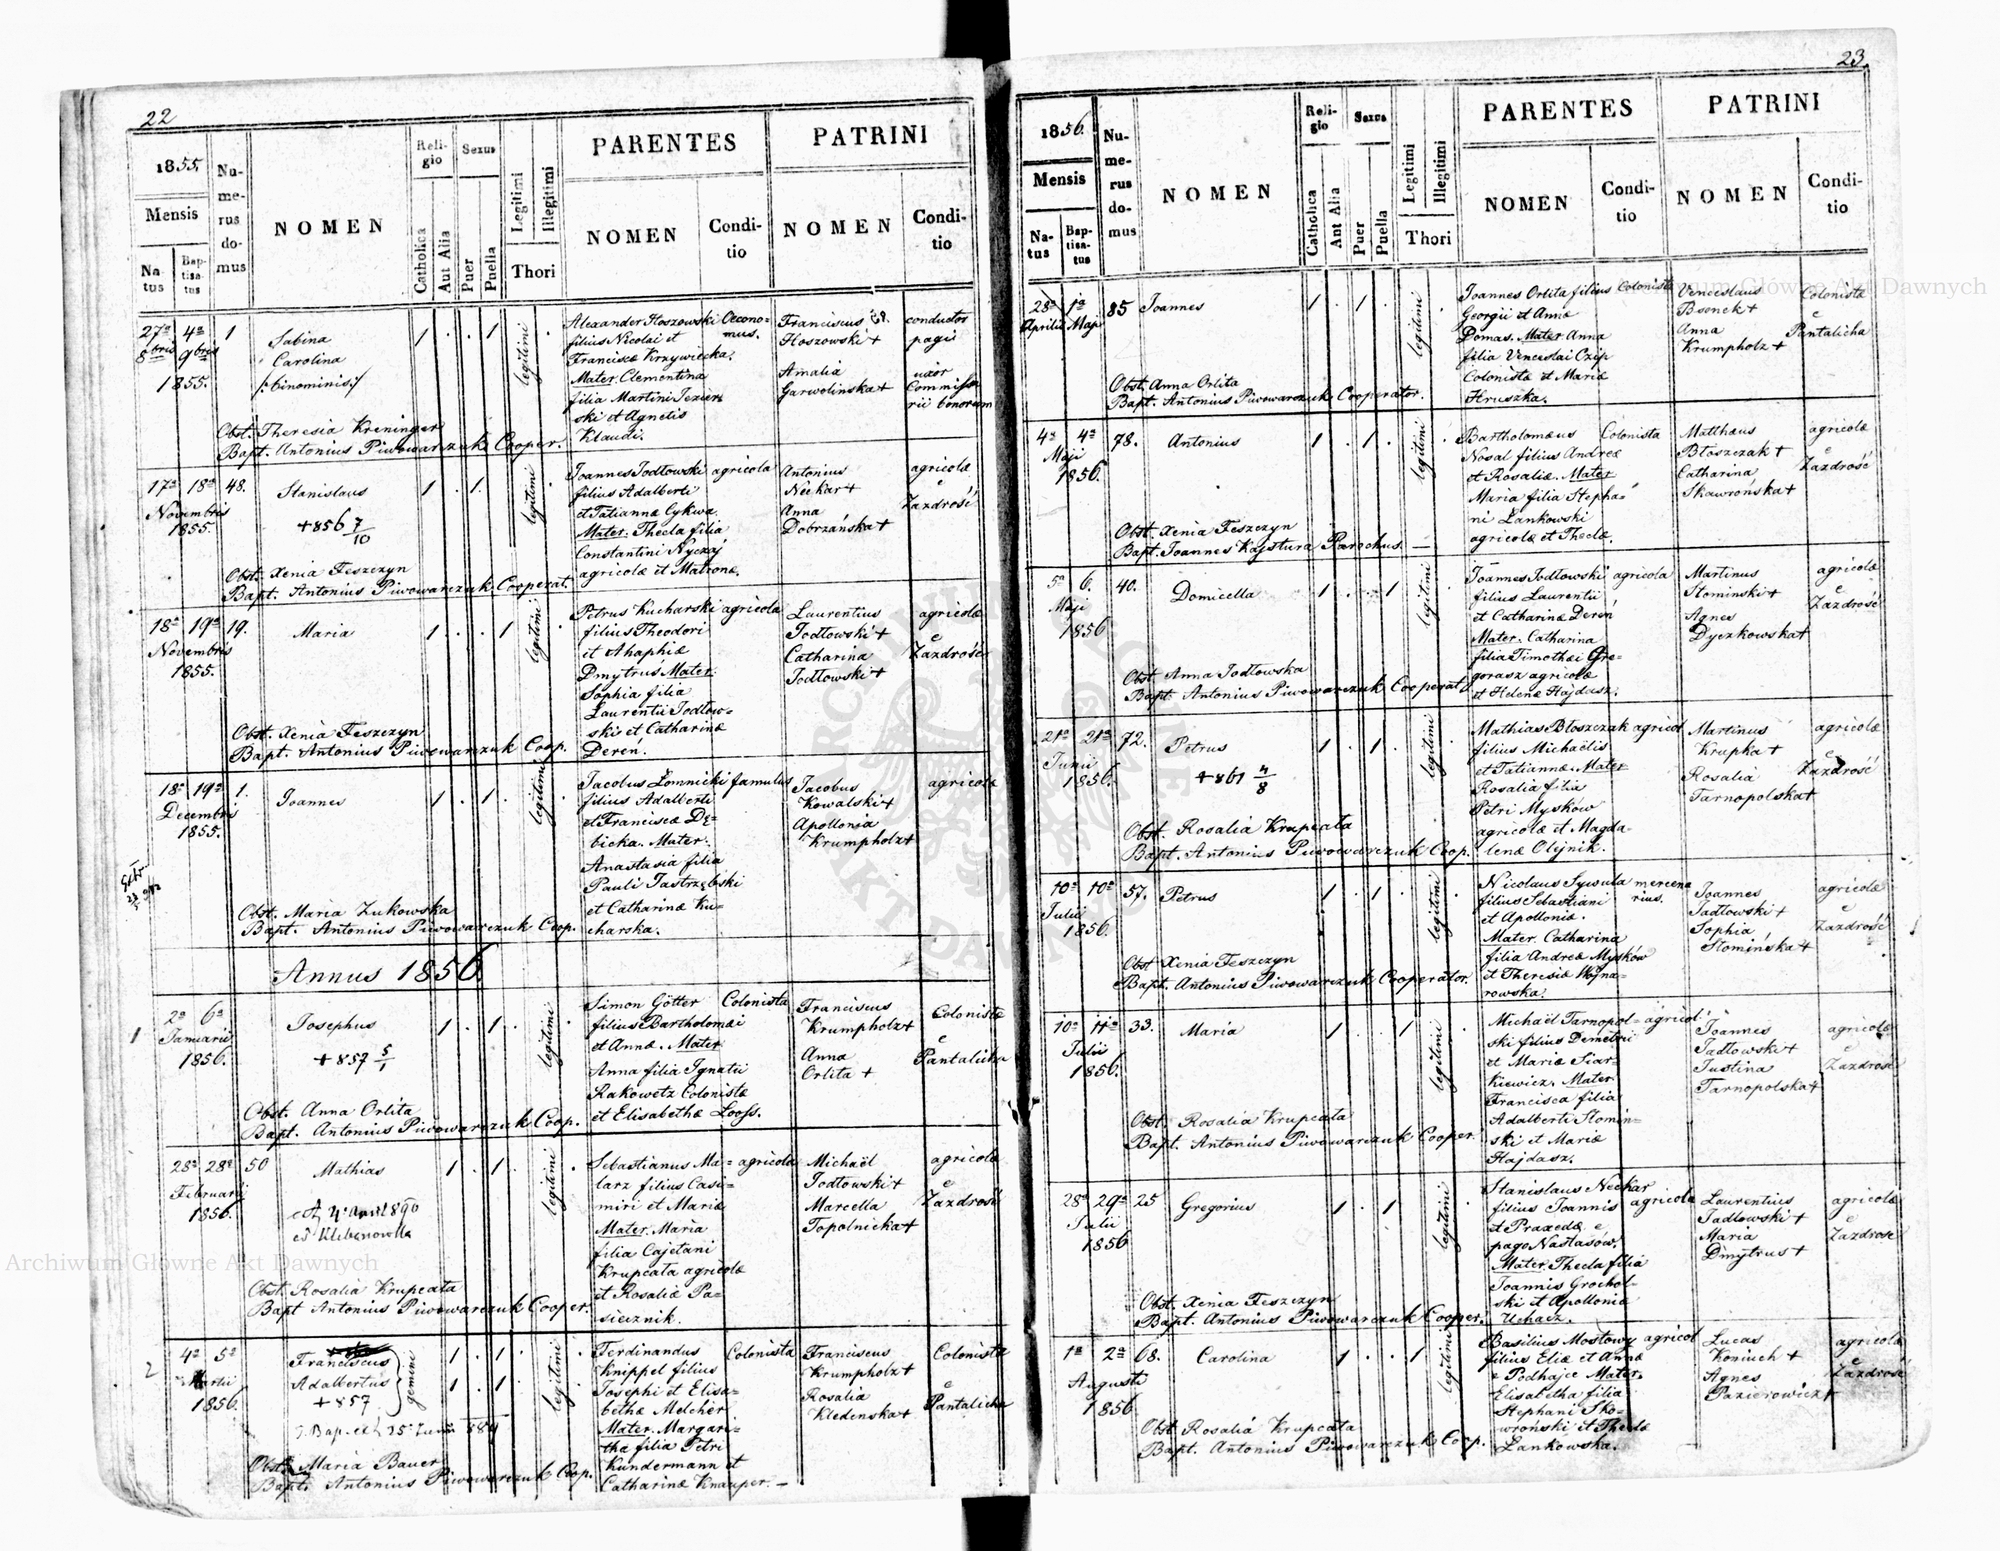 22
1855.
Mensis
Natus
Baptisatus
Numerus domus
NOMEN
Religio
Catholica
Aut Alia
Sexus
Puer
Puella
Legitimi
Illegitimi
Thori
PARENTES
NOMEN
Conditio
PATRINI
NOMEN
Conditio
27a 4a 1
8bris 9bris
1855.
Sabina
Carolina
/:binominis:/
legitimi
Alexander Hoszowski Oecono=
filius Nicolai et mus.
Franciscæ Krzywiecka.
Mater. Clementina
filia Martini Jezier
ski et Agnetis
Klaudi.
Franciscus
Hoszowski +
Amalia
Garwolinska +
conductor
pagi
uxor
Commissa
rii bonorum
Obst. Theresia Kreninger
Bapt. Antonius Piwowarczuk Cooper.
17a 18a 48.
Novembris
1855.
Stanislaus
+856 7/10
legitimi
Joannes Jodtowski agricola
filius Adalberti
et Tatianna Cykwa.
Mater. Thecla filia
Constantini Nyczaj
agricolæ et Matronæ.
Antonius
Neckar +
Anna
Dobrzańska +
agricolæ
e
Zazdrość
Obst. Xenia Feszczyn
Bapt. Antonius Piwowarczuk Cooperat.
18a 19a 19.
Novembris
1855.
Maria
legitimi
Petrus Kucharski agricola
filius Theodori
et Ahaphiæ
Dmytruś Mater.
Sophia filia
Laurentii Jodtow=
ski et Catharinæ
Dereń.
Laurentius
Jodtowski +
Catharina
Jodtowski +
agricolæ
e
Zazdrość
Obst. Xenia Feszczyn
Bapt. Antonius Piwowarczuk Coop.
18a 19a 1.
Decembris
1855.
Joannes
legitimi
Jacobus Łomnicki famulus
filius Adalberti
et Franciscæ Dę=
bicka. Mater.
Anastasia filia
Pauli Jastrzębski
et Catharinæ Ku=
charska.
Jacobus
Kowalski +
Apollonia
Krumpholz +
agricolæ
Obst. Maria Zukowska
Bapt. Antonius Piwowarczuk Coop.
Annus 1856.
1
2a 6a
Januarii
1856.
Josephus
+857 5/1
legitimi
Simon Götter Colonista
filius Bartholomæi
et Annæ. Mater
Anna filia Ignatii
Rakowetz Colonistæ
et Elisabethæ Looss.
Franciscus
Krumpholz +
Anna
Orlita +
Colonistæ
e
Pantalicha
Obst. Anna Orlita
Bapt. Antonius Piwowarczuk Coop.
28a 28a 50
Februarii
1856.
Mathias
legitimi
Sebastianus Ma= agricola
larz filius Casi=
miri et Mariæ
Mater. Maria
filia Cajetani
Krupcata agricolæ
et Rosaliæ Pa=
siecznik.
Michaël
Jodtowski +
Marcella
Topolnicka +
agricolæ
e
Zazdrość
Obst. Rosalia Krupcata
Bapt Antonius Piwowarczuk Cooper.
2
4a 5a
Martii
1856.
Franciscus
Adalbertus
+857
gemini
legitimi
Ferdinandus Colonista
Knippel filius
Josephi et Elisa=
bethæ Melcher
Mater. Margari=
tha filia Petri
Kundermann et
Catharinæ Knauper. —
Franciscus
Krumpholz +
Rosalia
Kledenska +
Colonistæ
e
Pantalicha
Obst. Maria Bauer
Bapt. Antonius Piwowarczuk Coop.
23.
1856.
Mensis
Natus
Baptisatus
Numerus domus
NOMEN
Religio
Catholica
Aut Alia
Sexus
Puer
Puella
Legitimi
Illegitimi
Thori
PARENTES
NOMEN
Conditio
PATRINI
NOMEN
Conditio
28a 1a 85
Aprilis Maji
Joannes
legitimi
Joannes Orlita filius Colonista
Georgii et Anna
Domas. Mater Anna
filia Venceslai Czip
Colonistæ et Mariæ
Hruszka.
Venceslaus
Bsonek +
Anna
Krumpholz +
Colonistæ
e
Pantalicha
Obst. Anna Orlita
Bapt. Antonius Piwowarczuk Cooperator.
4a 4a 78.
Maji
1856.
Antonius
legitimi
Bartholomæus Colonista
Nosal filius Andreæ
et Rosaliæ. Mater
Maria filia Stepha=
ni Lankowski
agricolæ et Theclæ.
Matthæus
Błoszczak +
Catharina
Skawrońska +
agricolæ
e
Zazdrość
Obst. Xenia Feszczyn
Bapt. Joannes Kajstura Parochus. —
5a 6. 40.
Maji
1856
Domicella
legitimi
Joannes Jodtowski agricola
filius Laurentii
et Catharinæ Dereń
Mater. Catharina
filia Timothæi Gre=
gorasz agricolæ
et Helenæ Hajdasz.
Martinus
Słominski +
Agnes
Dyczkowska +
agricolæ
e
Zazdrość
Obst. Anna Jodtowska
Bapt. Antonius Piwowarczuk Cooperat.
21a 21a 72.
Junii
1856.
Petrus
+861 4/8
legitimi
Mathias Błoszczak agricol
filius Michaëlis
et Tatiannæ. Mater
Rosalia filia
Petri Myskόw
agricolæ et Magda=
lenæ Olejnik.
Martinus
Krupka +
Rosalia
Tarnopolska +
agricolæ
e
Zazdrość
Obst. Rosalia Krupcata
Bapt. Antonius Piwowarczuk Coop.
10a 10a 57.
Julii
1856.
Petrus
legitimi
Nicolaus Sysula mercena
filius Sebastiani rius.
et Apolloniæ.
Mater. Catharina
filia Andreæ Myskόw
et Theresiæ Wojna=
rowska.
Joannes
Jadtowski +
Sophia
Słomińska +
agricolæ
e
Zazdrość
Obst. Xenia Feszczyn
Bapt. Antonius Piwowarczuk Cooperator.
10a 11a 33.
Julii
1856.
Maria
legitimi
Michaël Tarnopol= agricol.
ski filius Demetrii
et Mariæ Siar=
kiewicz. Mater
Francisca filia
Adalberti Słomin=
ski et Mariæ
Hajdasz.
Joannes
Jadtowski +
Justina
Tarnopolska +
agricolæ
e
Zazdrość
Obst. Rosalia Krupcata
Bapt. Antonius Piwowarczuk Cooper.
28a 29a 25
Julii
1856
Gregorius
legitimi
Stanislaus Neckar
filius Joannis agricola
et Praxedæ e
pago Nastasów.
Mater. Thecla filia
Joannis Grochol=
ski et Apolloniæ
Uchacz.
Laurentius
Jadtowski +
Maria
Dmytrus +
agricolæ
e
Zazdrość
Obst. Xenia Feszczyn
Bapt. Antonius Piwowarczuk Cooper.
1a 2a 68.
Augusti
1856
Carolina
legitimi
Basilius Mostowy agricol
filius Eliæ et Annæ
e Podhajce Mater.
Elisabetha filia
Stephani Sko=
wroński et Theclæ
Lankowska.
Lucas
Koniuch +
Agnes
Pazierowicz +
agricolæ
e
Zazdrość
Obst. Rosalia Krupcata
Bapt. Antonius Piwowarczuk Coop.
Archiwum Główne Akt Dawnych